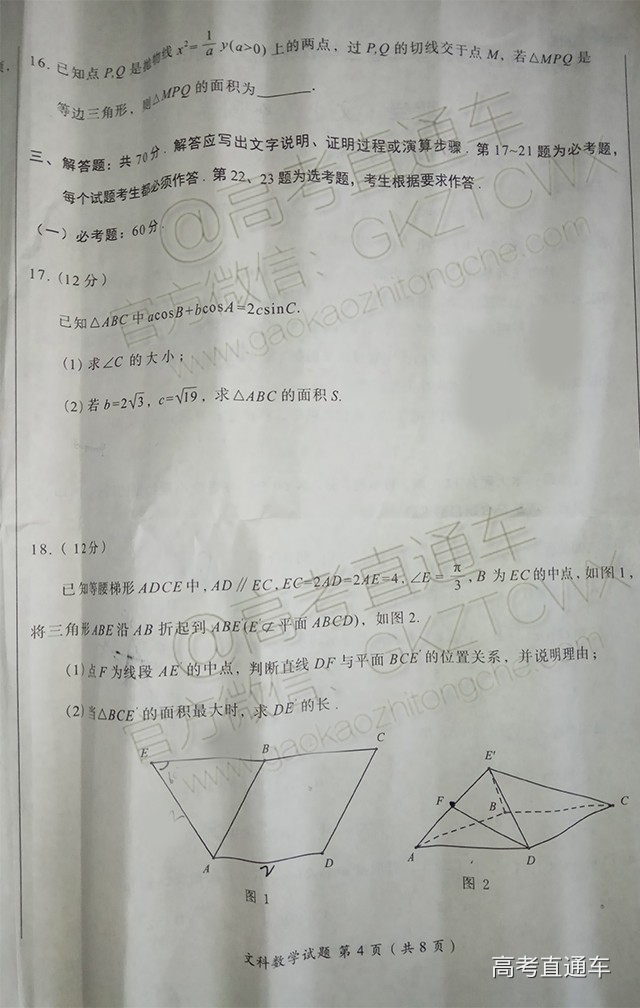 16. 已知点 P,Q 是抛物线 x²=1/a y(a>0) 上的两点，过 P,Q 的切线交于点 M，若△MPQ 是
等边三角形，则△MPQ 的面积为______.
三、解答题：共 70 分．解答应写出文字说明、证明过程或演算步骤．第 17~21 题为必考题，
每个试题考生都必须作答．第 22、23 题为选考题，考生根据要求作答．
（一）必考题：60 分．
17.（12 分）
已知△ABC 中 acosB+bcosA=2csinC.
(1) 求∠C 的大小；
(2) 若 b=2√3，c=√19，求△ABC 的面积 S.
18.（ 12分）
已知等腰梯形 ADCE 中，AD∥EC，EC=2AD=2AE=4，∠E=π/3，B 为 EC 的中点，如图 1，
将三角形 ABE 沿 AB 折起到 ABE′(E′⊄平面 ABCD)，如图 2.
(1) 点 F 为线段 AE′的中点，判断直线 DF 与平面 BCE′的位置关系，并说明理由；
(2) 当△BCE′的面积最大时，求 DE′的长．
E B C
2
A 2 D
图 1
E′
F B C
A D
图 2
文科数学试题 第 4 页（共 8 页）
@高考直通车
官方微信：GKZTCWX
www.gaokaozhitongche.com
@高考直通车
官方微信：GKZTCWX
www.gaokaozhitongche.com
高考直通车